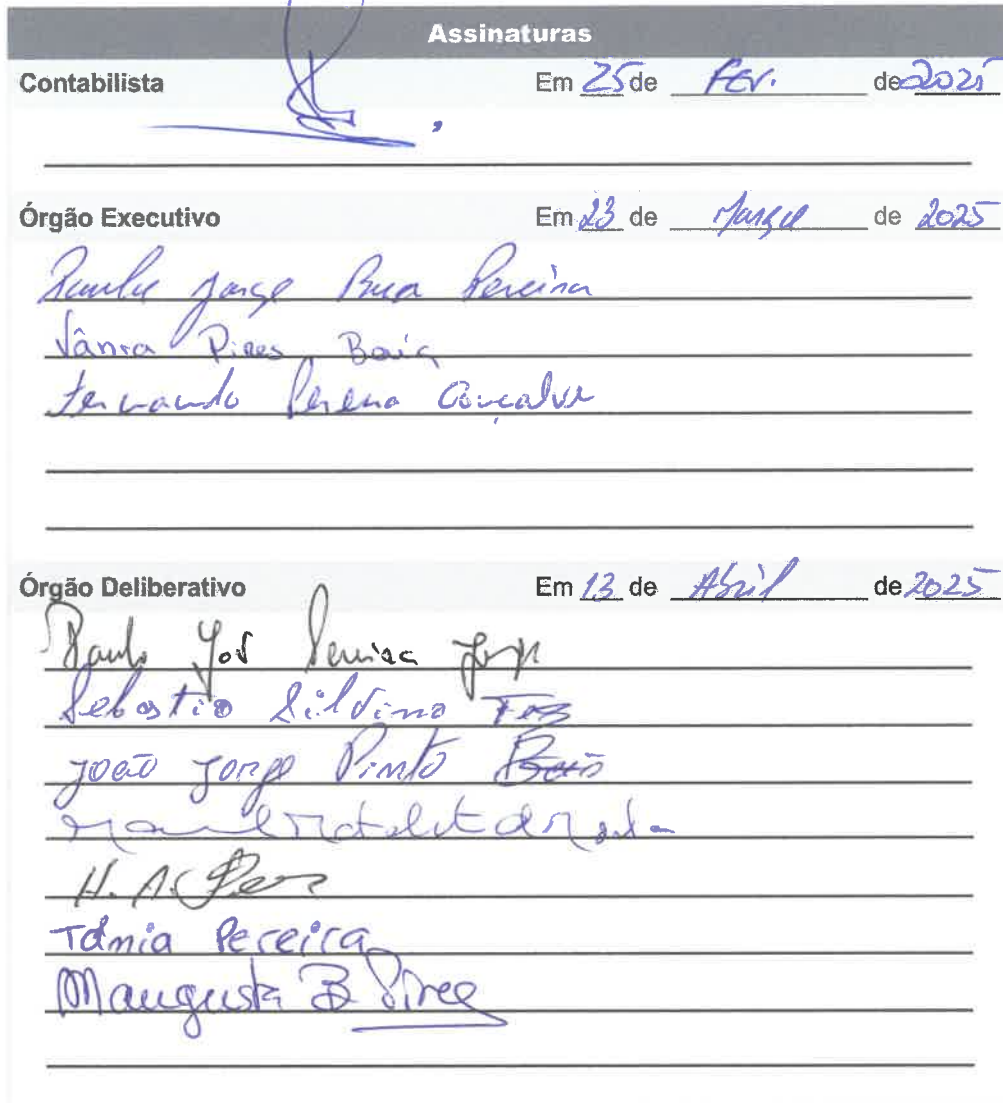 Assinaturas
Contabilista Em 25 de Fev. de 2025
Órgão Executivo Em 23 de Março de 2025
Jorge Pereira
Vânia Pires Baía
Fernando Pereira Gonçalves
Órgão Deliberativo Em 13 de Abril de 2025
Paulo José Pereira Jorge
Sebastião Silvino
João Jorge Pinto
H. A.
Tânia Pereira
Maugusta B Pires